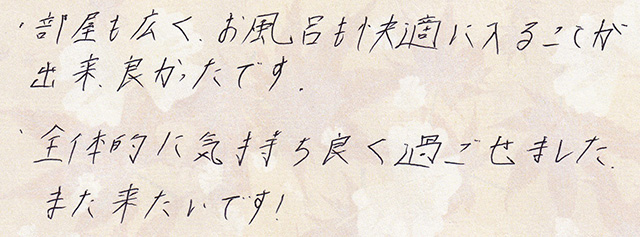 ・部屋も広く、お風呂も快適に入ることが
出来、良かったです.
・全体的に気持ち良く過ごせました.
また来たいです!